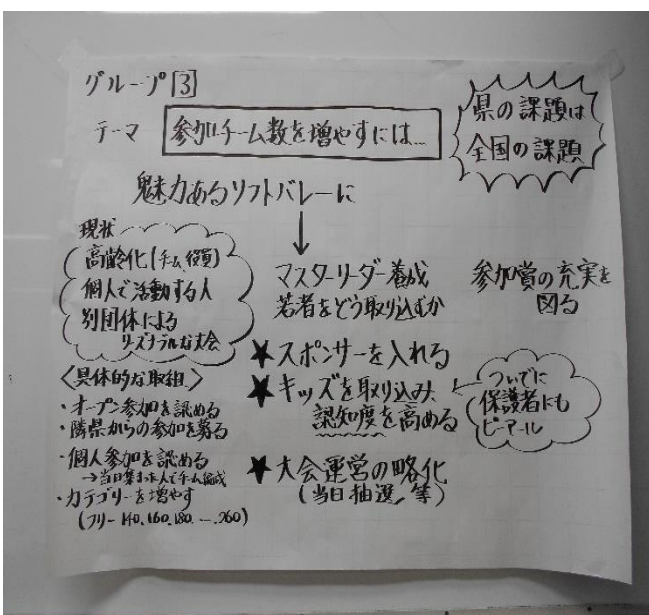 グループ 3
テーマ 参加チーム数を増やすには…
県の課題は
全国の課題
魅力あるソフトバレーに
↓
現状
高齢化(チーム、役員)
個人で活動する人
別団体による
リーズナブルな大会
マスターリーダー養成
若者をどう取り込むか
参加賞の充実を
図る
★スポンサーを入れる
★キッズを取り込み、
認知度を高める
ついでに
保護者にも
ピーアール
★大会運営の略化
(当日抽選/等)
<具体的な取組>
・オープン参加を認める
・隣県からの参加を募る
・個人参加を認める
→当日集まった人でチーム編成
・カテゴリーを増やす
(フリー140.160.180.….260)